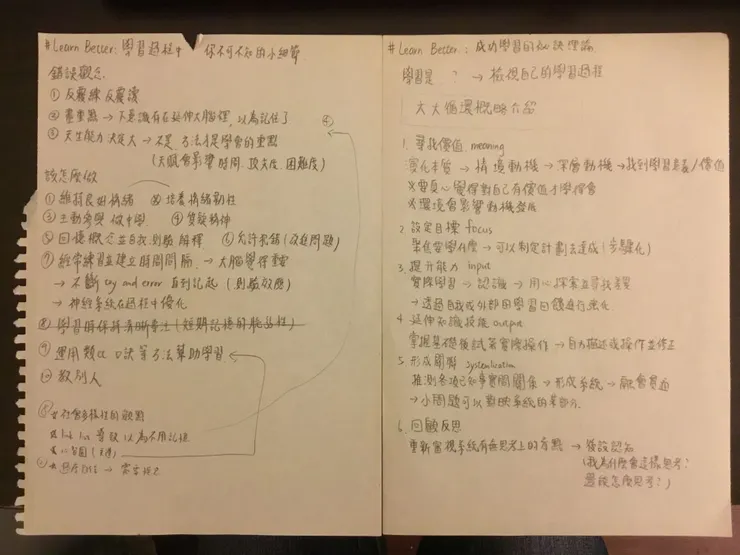 #Learn Better: 學習過程中 你不可不知的小細節
錯誤觀念
① 反覆練 反覆讀
② 畫重點 → 下意識有在延伸大腦裡, 以為記住了
③ 天生能力決定大 → 不是, 方法才是學會的重點
(天賦會影響時間、困難度)
該怎麼做
① 維持良好情緒 ② 培養情緒韌性
③ 主動參與 做中學 ④
⑤ 回憶概念並自我測驗 解釋 ⑥ 允許求錯 (沒有問題)
⑦ 經常練習並建立時間間隔 → 大腦覺得重要
→ 不斷 try and error 直到記起 (測驗效應)
→ 神經系統在過程中優化
⑧ 學習時保持清晰專注 (短期記憶的脆弱性)
⑨ 運用類比 口訣等方法幫助學習
⑩ 教別人
社會多樣性的觀點
以為不用記憶
#Learn Better: 成功學習的祕訣理論
學習是 ? → 檢視自己的學習過程
六大循環概略介紹
1. 尋找價值 meaning
變化本質 → 情境動機 → 深層動機 → 找到學習意義/價值
※ 要真心覺得對自己有價值才學得會
※ 環境會影響動機發展
2. 設定目標 focus
聚焦要學什麼 → 可以制定計劃去達成 (步驟化)
3. 提升能力 input
實際學習 → 認識 → 用心探索並尋找差異
→ 透過自我或外部的學習回饋進行強化
4 延伸知識技能 output
掌握基礎後試著實際操作 → 自力描述或操作並修正
5. 形成關聯
推測各項已知事實間關係 → 形成系統 → 融會貫通
→ 小問題可以對映系統的某部分
6. 回顧反思
重新審視系統有無思考上的盲點 → 後設認知
(我為什麼會這樣思考?
應該怎麼思考?)